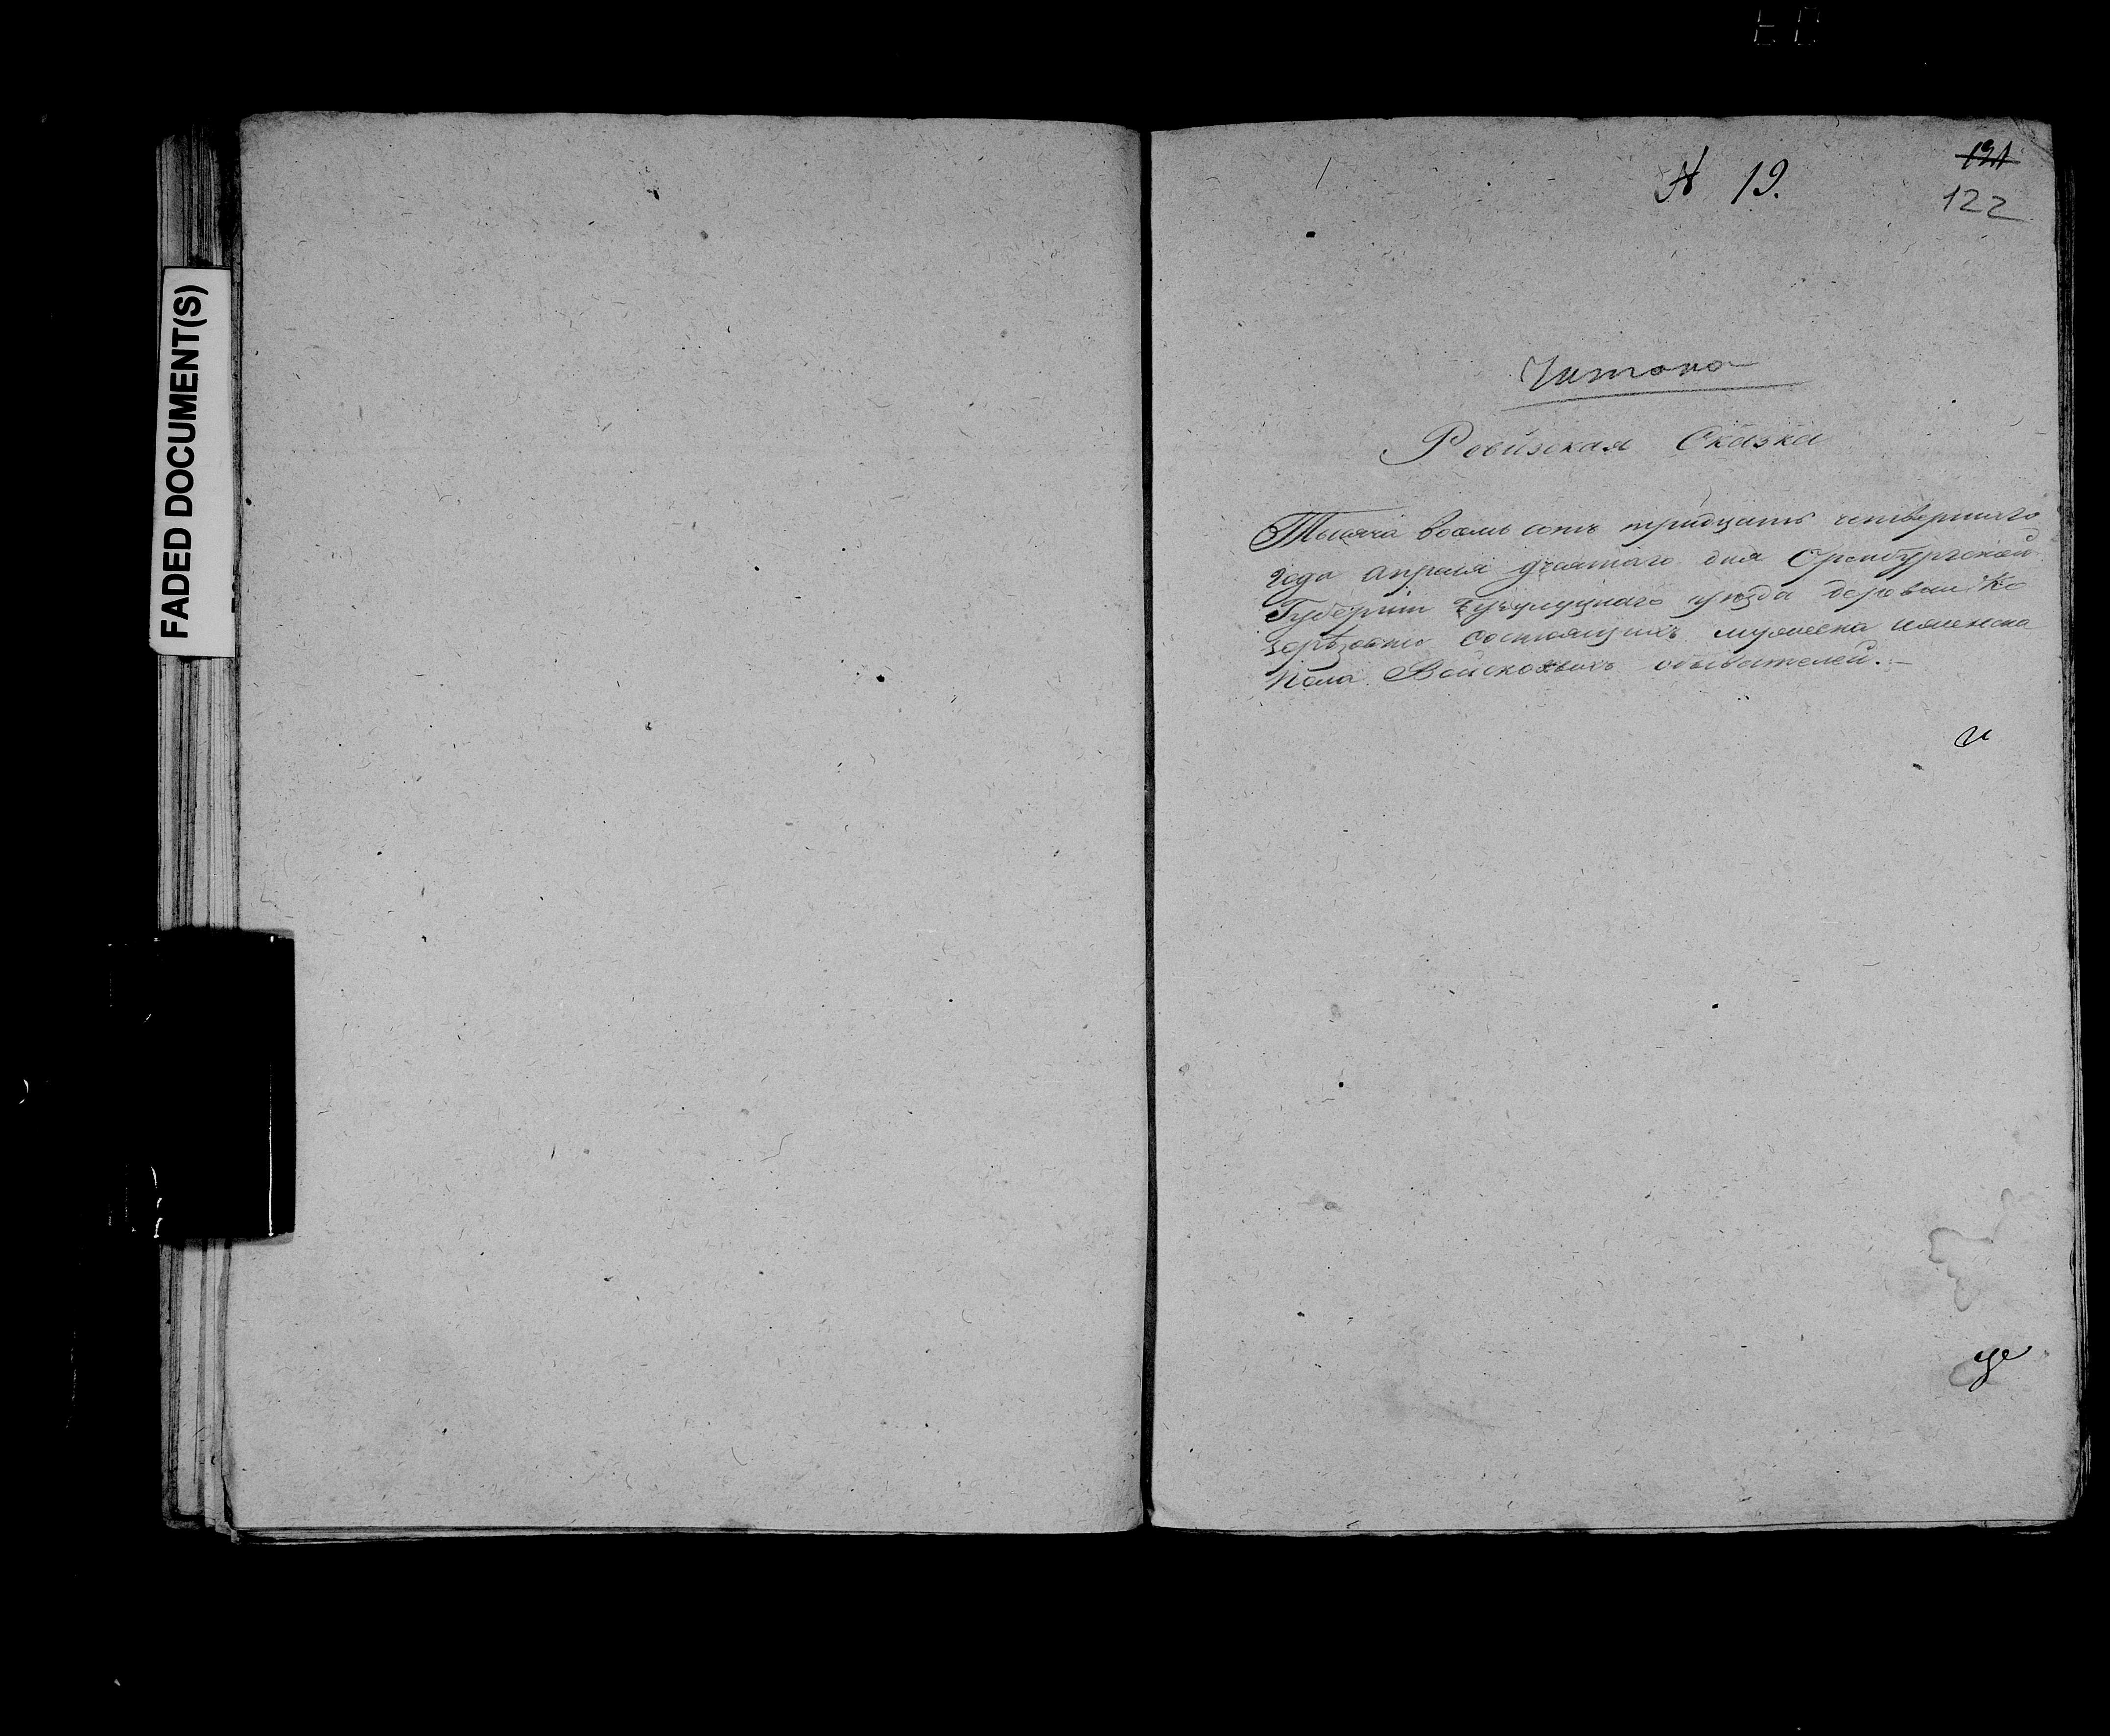 FADED DOCUMENT(S)
№ 19.
121
122
Читано
Ревизская Сказка
Тысяча восемь сотъ тридцать четвертаго
года апреля десятаго дня Оренбургской
Губернiи Бугулуцкаго уезда деревни Ко
состоящихъ мужеска и женска
пола Войсковыхъ обывателей.-